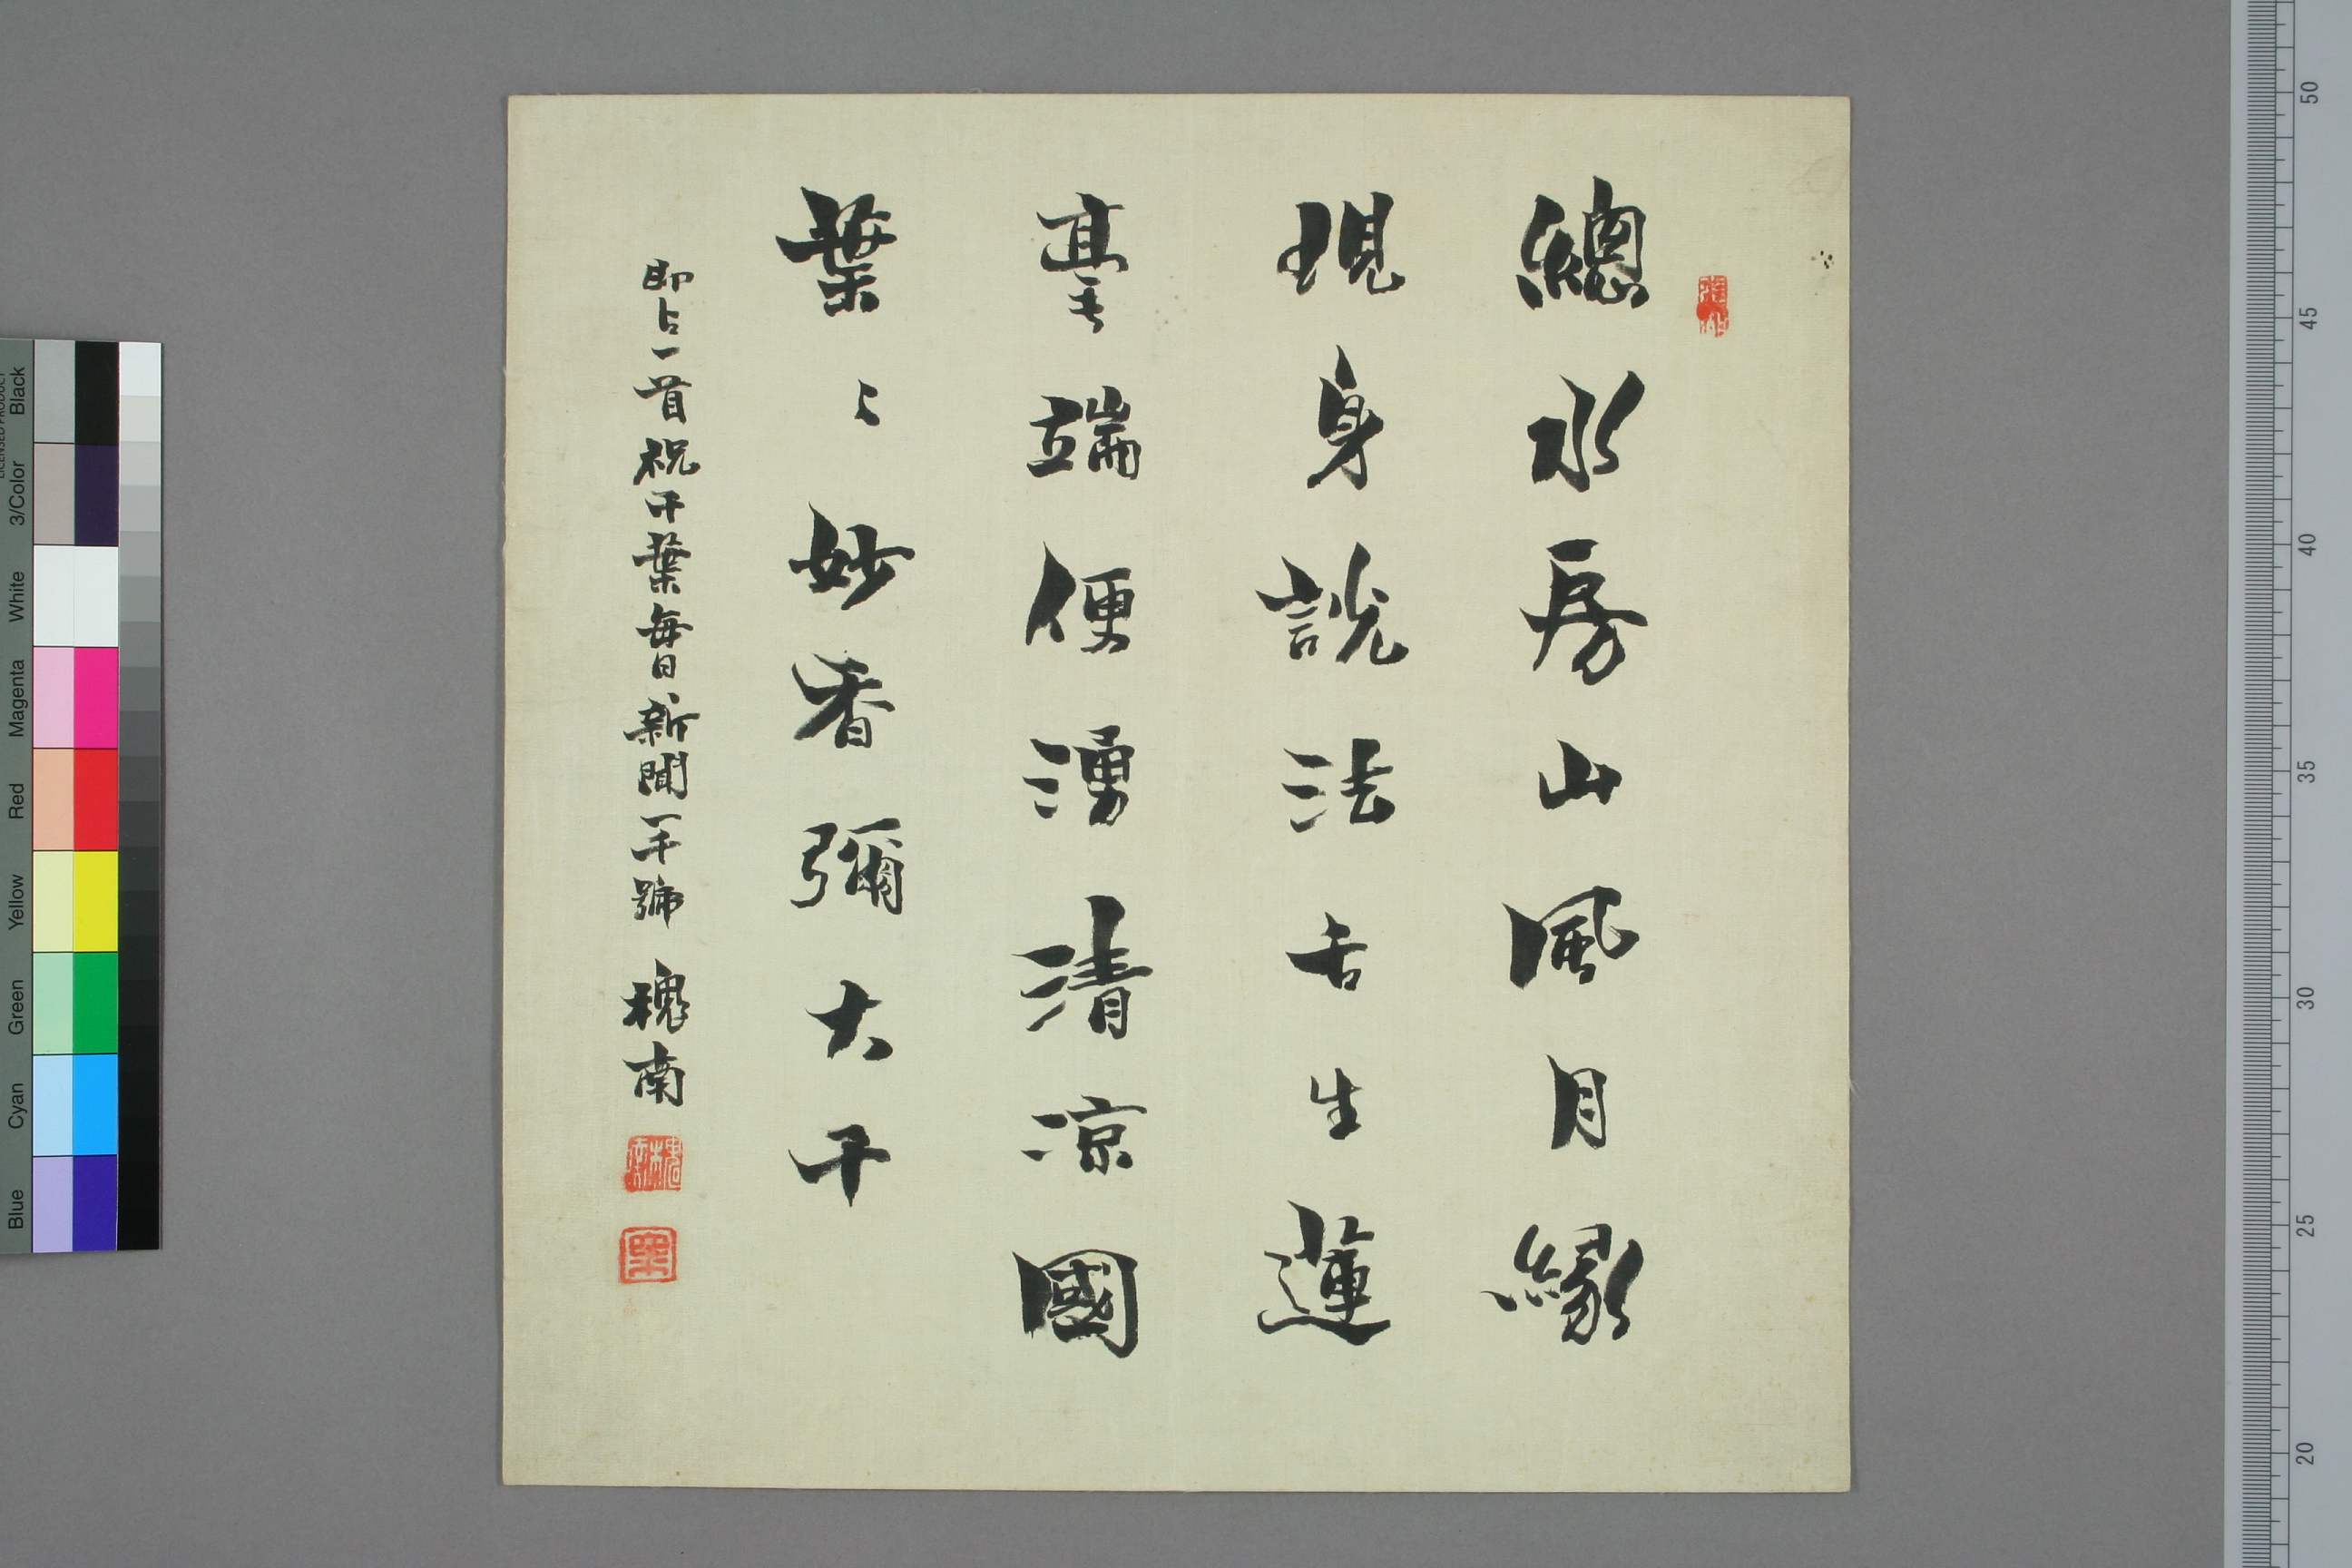 總水房山風月緣
現身說法舌生蓮
毫端便湧清凉國
葉〻妙香彌大千
即占一首祝千葉每日新聞一千號 槐南
Black
3/Color
White
Magenta
Red
Yellow
Green
Cyan
Blue
50
45
40
35
30
25
20